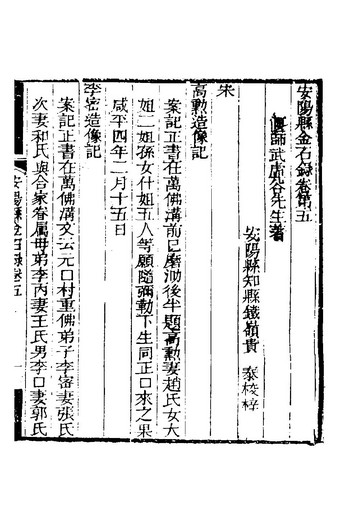 安陽縣金石錄卷第五
偃師武虛谷先生著
安陽縣知縣鐵嶺貴 泰梭梓
宋
高勳造像記
案記正書在萬佛溝前已磨泐後半題高勳妻趙氏女大
姐二姐孫女什姐五人等願隨彌勒下生同正口來之果
咸平四年二月十五日
李密造像記
案記正書在萬佛溝文云元口村重佛弟子李密妻張氏
次妻和氏與合家眷属毋弟李丙妻王氏男李口妻郭氏
安陽縣金石錄卷五
一